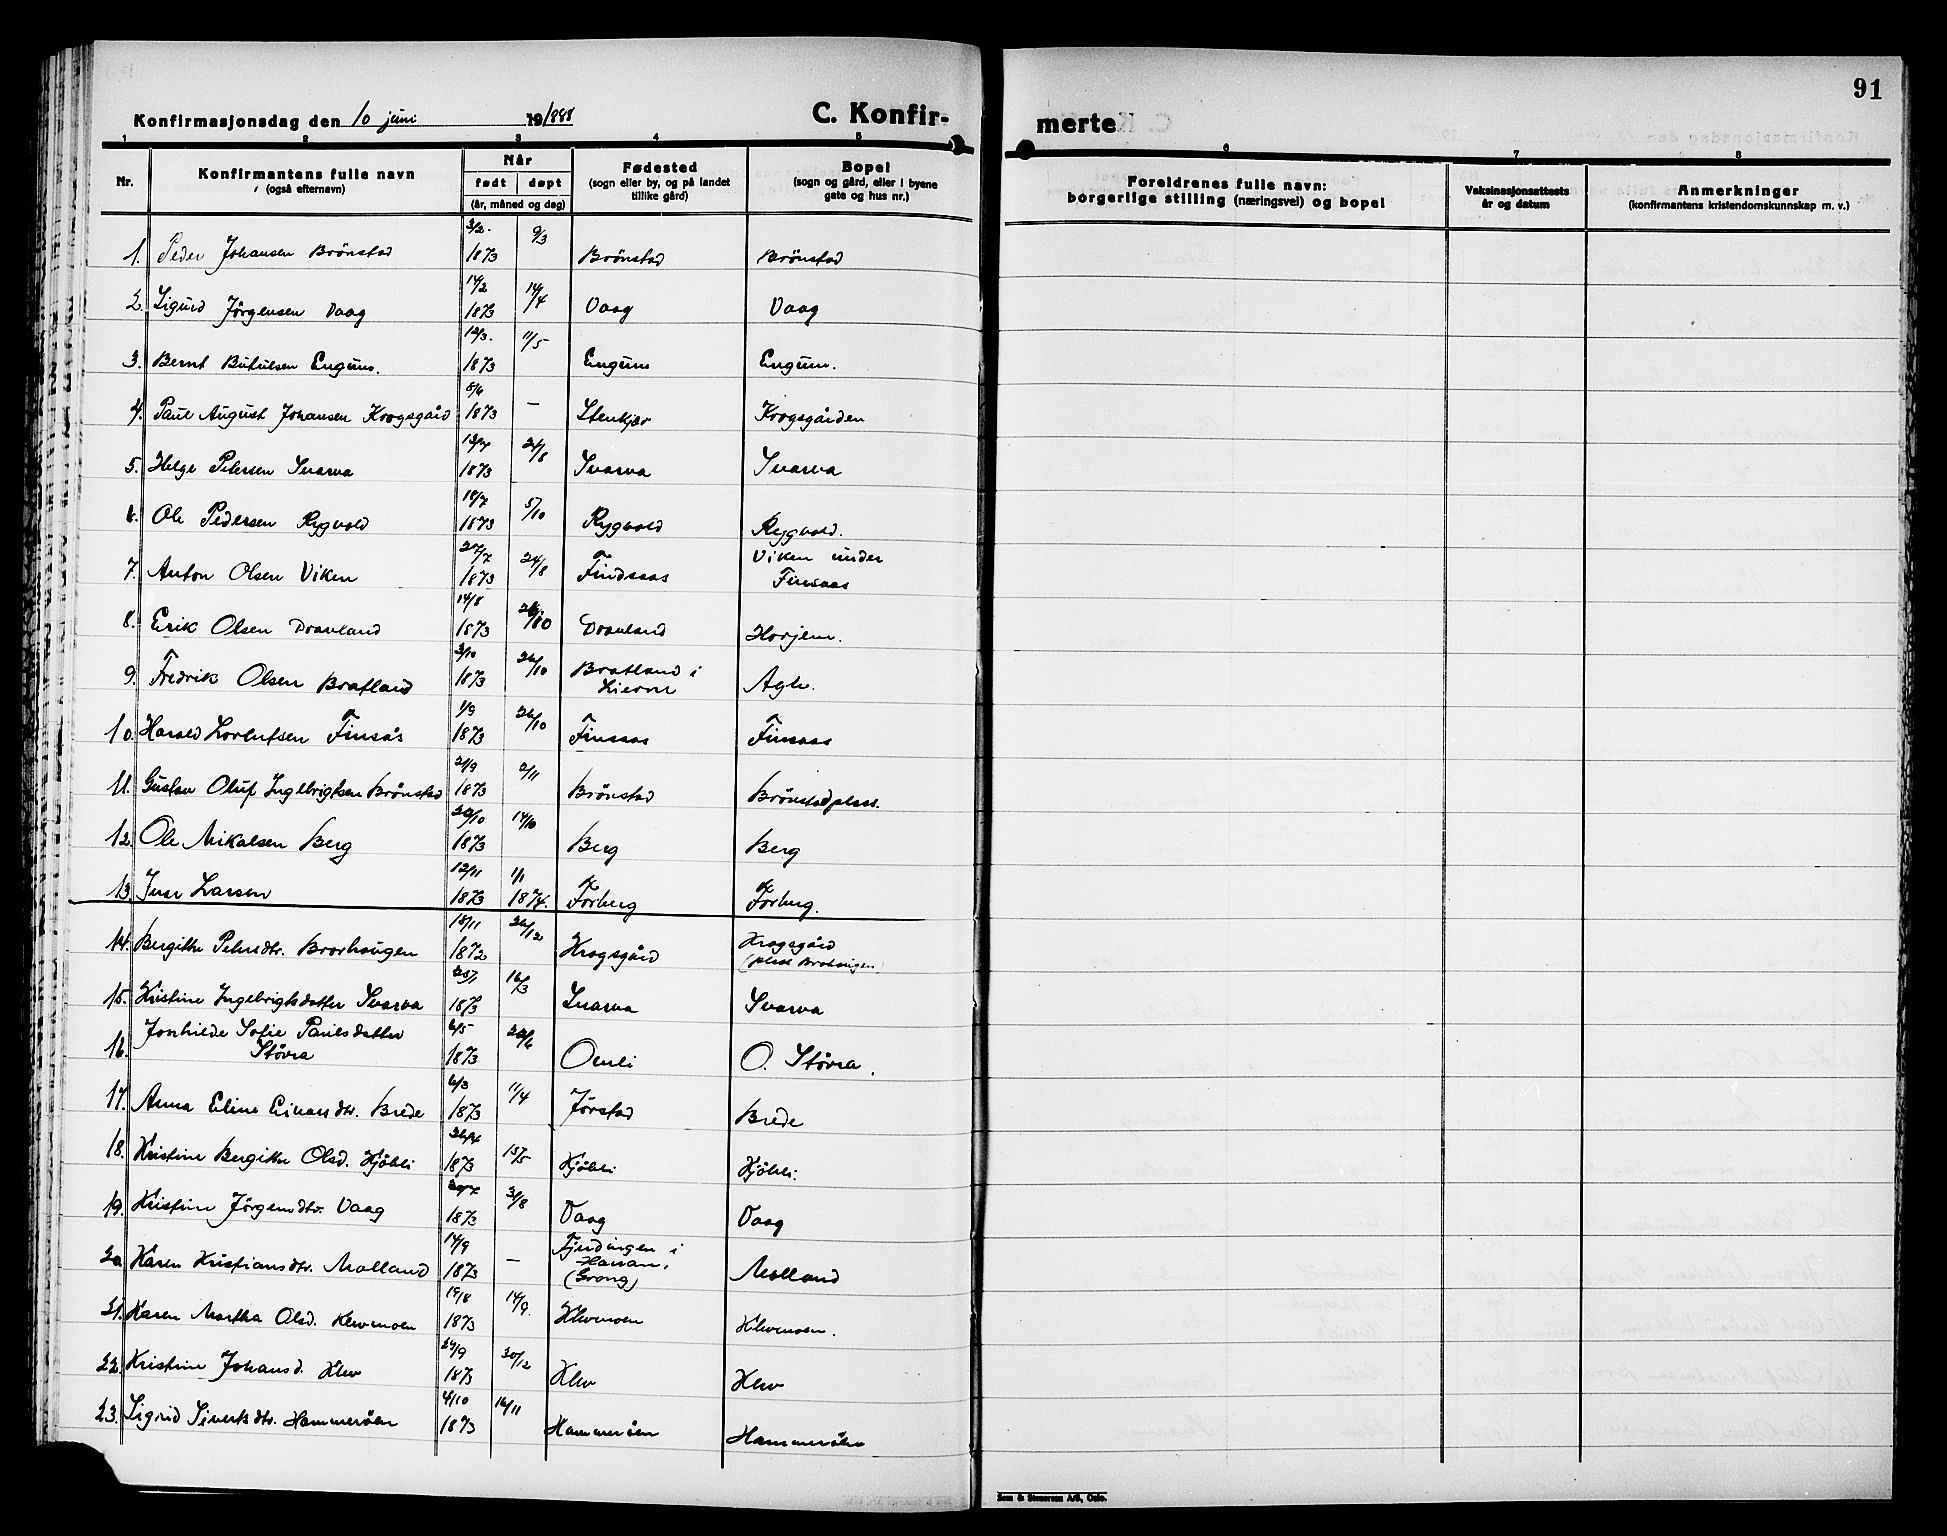 91
Konfirmasjonsdag den 10 juni 19 1888
C. Konfir-
merte
1 2 3 4 5
6 7 8
Nr.
Konfirmantens fulle navn
(også efternavn)
Når
født døpt
(år, måned og dag)
Fødested
(sogn eller by, og på landet
tillike gård)
Bopel
(sogn og gård, eller i byene
gate og hus nr.)
Foreldrenes fulle navn:
borgerlige stilling (næringsvei) og bopel
Vaksinasjonsattests
år og datum
Anmerkninger
(konfirmantens kristendomskunnskap m. v.)
3/2. 9/3
1. Peder Johansen Brönstad 1873 Brönstad Brönstad
14/2 14/4
2. Sigurd Jörgensen Vaag 1873 Vaag Vaag
12/3. 11/5
3. Bernt Butulsen Engum. 1873 Engum Engum.
5/6 —
4. Paul August Johansen Krogsgård 1873 Stenkjær Krogsgården
13/7 24/8
5. Helge Petersen Svarva 1873 Svarva Svarva
18/7 5/10
6. Ole Pedersen Rygvold 1873 Rygvold Rygvold.
27/7 24/8 Viken under
7. Anton Olsen Viken 1873 Findsaas Finsaas
14/8 26/10
8. Erik Olsen Dravland 1873 Dravland Horjem.
3/10 26/10 Bratland i
9. Fredrik Olsen Bratland 1873 Lierne Agle.
1/9 26/10
10. Harald Lorentsen Finsås 1873 Finsaas Finsaas
21/9 2/11
11. Gustav Oluf Ingebrigtsen Brönstad 1873 Brönstad Brönstadplass.
20/10 14/10
12. Ole Mikalsen Berg 1873 Berg Berg
12/11 1/1
13. Iver Larsen 1873 1874. Förberg Förberg.
18/11 26/12 Krogsgård
14. Bergitte Petersdtr. Brarhaugen 1872 Krogsgård (plass Brahaugen)
25/1 16/3
15. Kristine Ingebrigtsdatter Svarva 1873 Svarva Svarva
Jonhilde Sofie Paulsdatter 6/5
16. Stövra 1873 Oenli O. Stövra.
6/3 11/4
17. Anna Eline Einarsdtr. Brede 1873 Jörstad Brede
15/5
18. Kristine Bergitte Olsd. Kjöbli 1873 Kjöbli Kjöbli.
31/8
19. Kristine Jörgensdtr. Vaag 1873 Vaag Vaag
14/9 — Fjerdingen i
20. Karen Kristiansdtr. Molland 1873 Harran, (Grong) Molland
19/8 14/9.
21. Karen Martha Olsd. Klevmoen 1873 Klevmoen Klevmoen.
29/9 30/12
22. Kristine Johansd. Klev 1873 Klev Klev
4/10 16/11
23. Sigrid Sivertsdtr. Hammeröen 1873 Hammeröen Hammeröen
Sem & Stenersen A/S, Oslo.